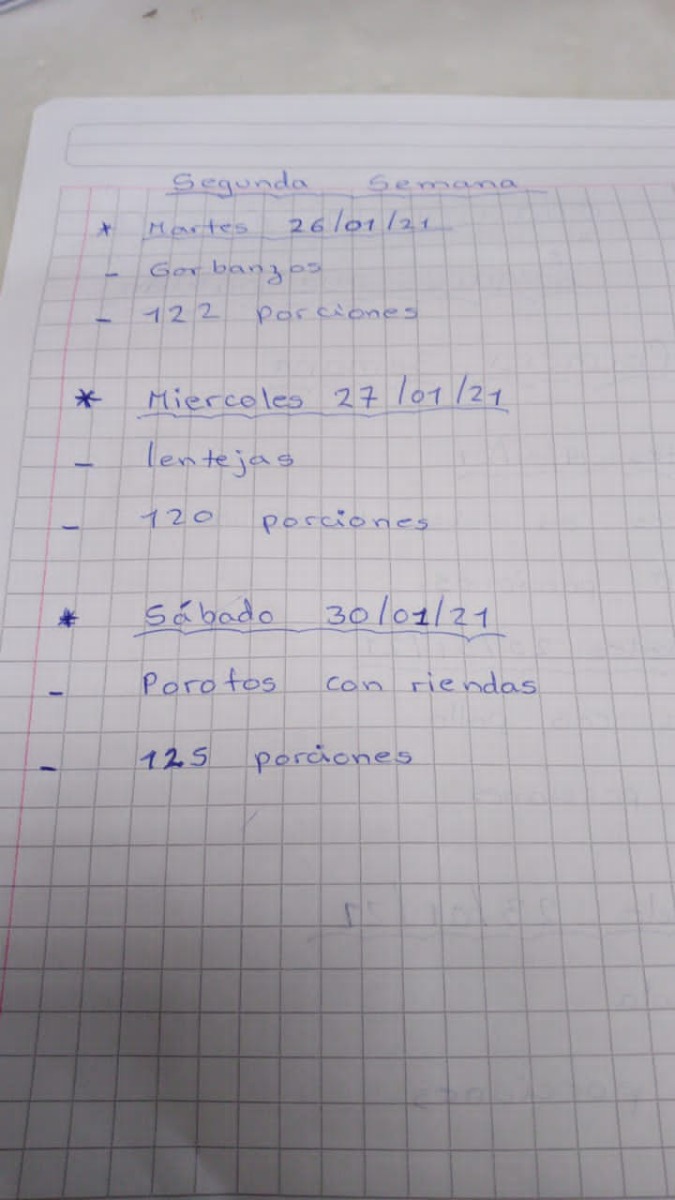 Segunda Semana
* Martes 26/01/21
- Garbanzos
- 122 porciones
* Miercoles 27/01/21
- lentejas
- 120 porciones
* Sábado 30/01/21
- Porotos con riendas
- 125 porciones